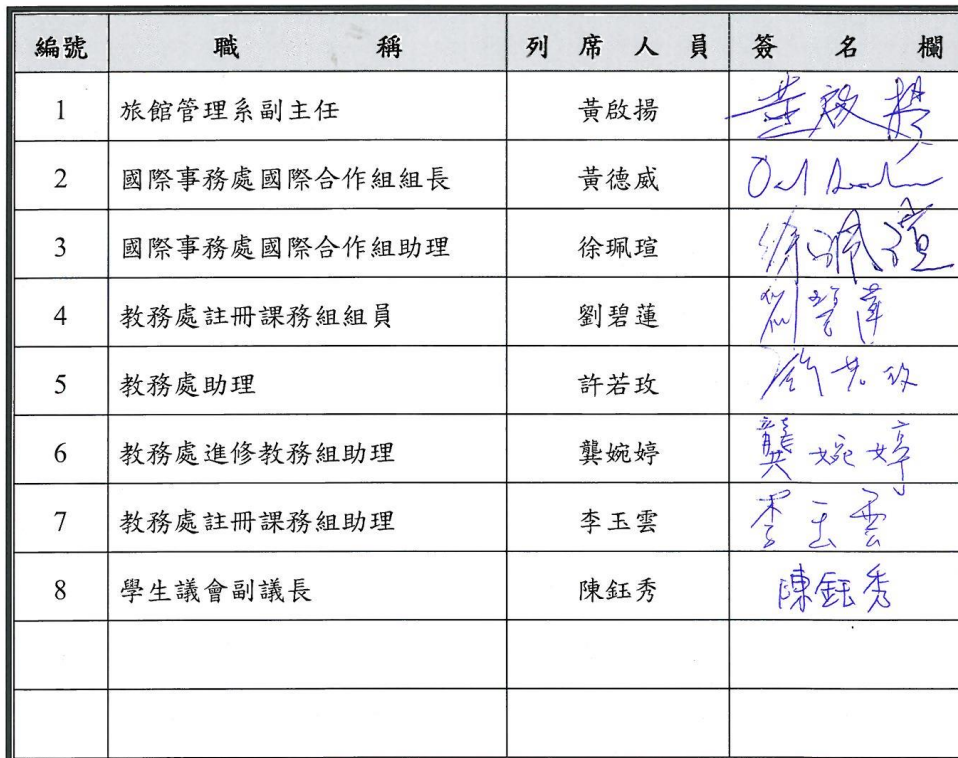 編號 職稱 列席人員 簽名欄
1 旅館管理系副主任 黃啟揚 黃啟揚
2 國際事務處國際合作組組長 黃德威
3 國際事務處國際合作組助理 徐珮瑄 徐珮瑄
4 教務處註冊課務組組員 劉碧蓮 劉碧蓮
5 教務處助理 許若玫 許若玫
6 教務處進修教務組助理 龔婉婷 龔婉婷
7 教務處註冊課務組助理 李玉雲 李玉雲
8 學生議會副議長 陳鈺秀 陳鈺秀